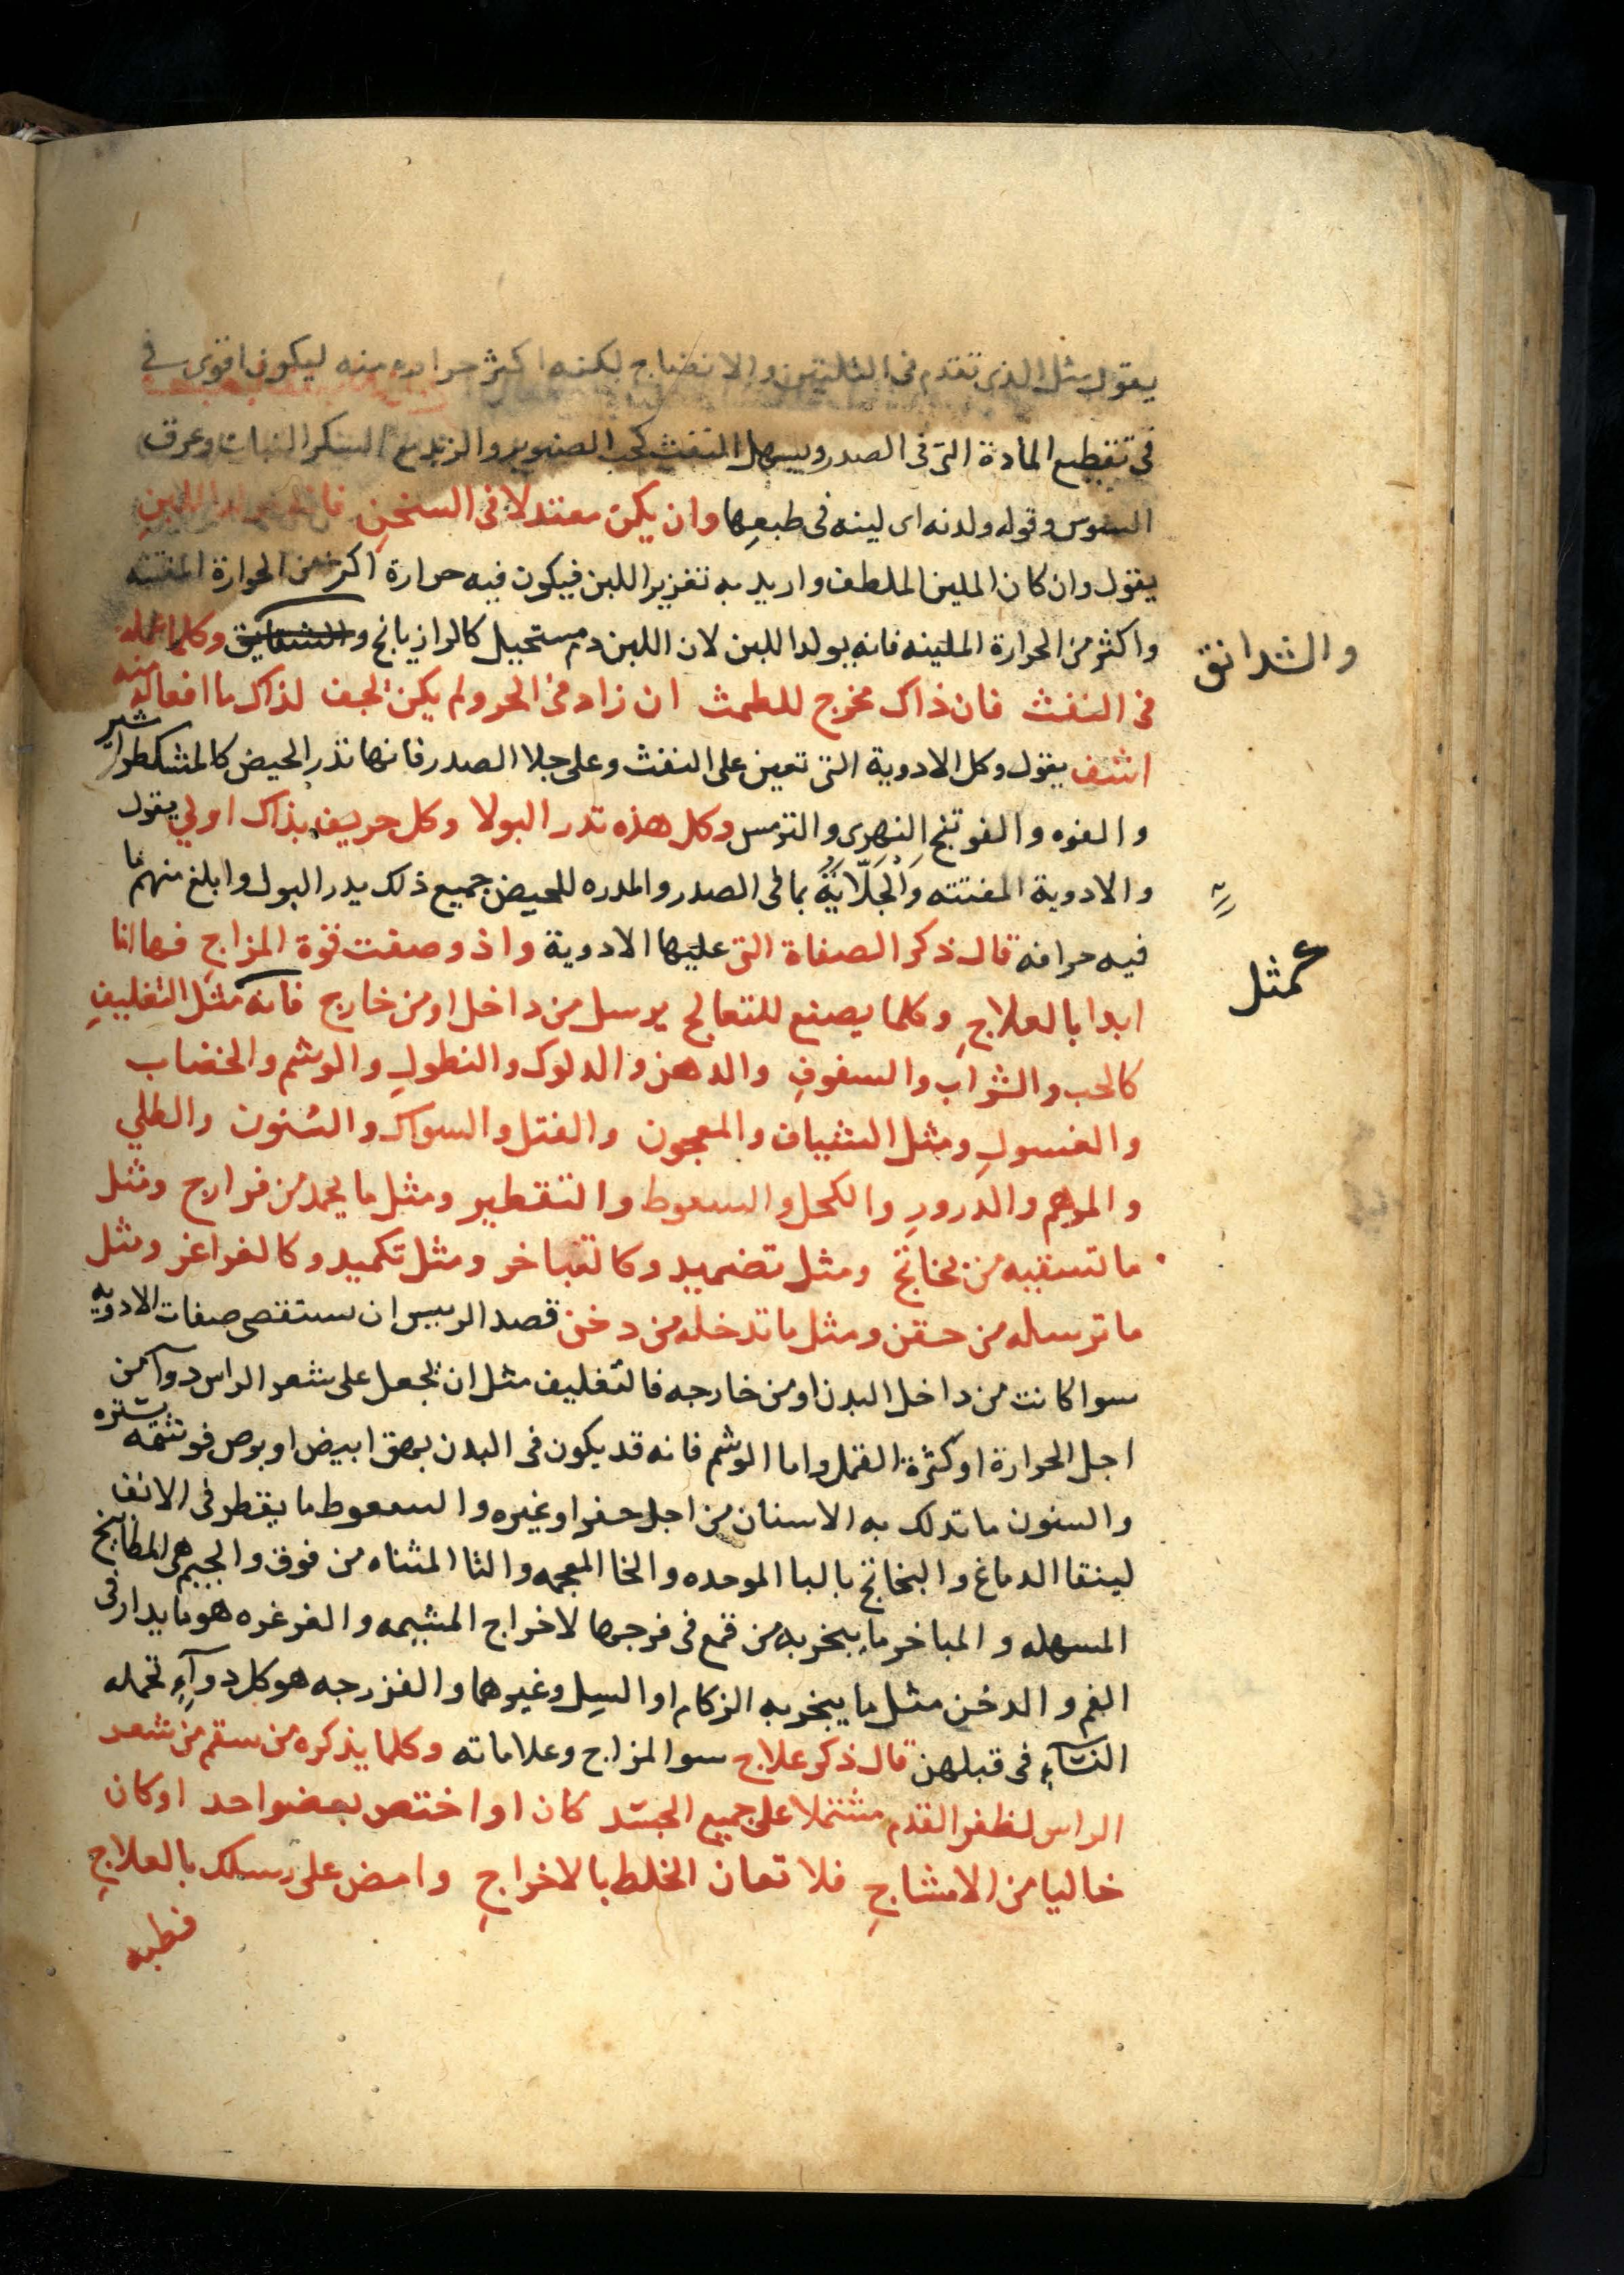 يقول مثل الذى تقدم فى التليين والانضاج لكنه اكثر حراره منه ليكون اقوى فى
فى تقطيع المادة التى فى الصدر ويسهل النفث كحب الصنوبر والزبد مع السكر النبات وعرق
السوس وقوله ولدنه اى لينه فى طبعها وان يكن معتدلا فى السخن فانه يولد اللبن
يقول وان كان الملين الملطف واريد به تغزير اللبن فيكون فيه حرارة اكثر من الحرارة المفتته
واكثر من الحرارة الملينه فانه يولد اللبن لان اللبن دم مستحيل كالرازيانج والشقايق وكلما اعمله
والشدانق
فى النفث فان ذاك مخرج للطمث ان زاد فى الحر ولم يكن لجف لذاك ما افعاله منه
اشف يقول وكل الادوية التى تعين على النفث وعلى جلا الصدر فانها تدر الحيض كالمشكطرا شير
والفوه والفوتنج النهرى والترمس وكل هذه تدر البولا وكل حريف بذاك اولي يقول
والادوية المفتته والجلاية بما فى الصدر والمدره للحيض جميع ذلك يدر البول وابلغ منها ما
فيه حرافه قال ذكر الصفاة التى عليها الادوية واذ وصفت قوة المزاج فها انا
ابدا بالعلاج وكلما يصنع للتعالج يرسل من داخل او من خارج فانه مثل التغليف
كمثل
كالحب والشراب والسفوف والدهن والدلوك والنطول والوشم والخضاب
والغسول ومثل الشياف والمعجون والفتل والسواك والسنون والطلي
والمرهم والدرور والكحل والسعوط والتقطير ومثل ما يحمد من فرارج ومثل
ما تسقيه من بخاتج ومثل تضميد وكالتباخر ومثل تكميد وكالغراغر ومثل
ما ترسله من حقن ومثل ما تدخله من دخن قصد الرييس ان يستقصى صفات الادويه
سوا كانت من داخل البدن او من خارجه فالتغليف مثل ان يجعل على شعر الراس دوآ من
اجل الحرارة او كثرة القمل واما الوشم فانه قد يكون فى البدن بهق ابيض او برص فوشمه يستره
والسنون ما تدلك به الاسنان من اجل حفر او غيره والسعوط ما يقطر فى الانف
لينقا الدماغ والبخاتج بالبا الموحده والخا المعجمه والتا المثناه من فوق والجيم هى المطابيخ
المسهله والمباخر ما يبخر به من قمع فى فرجها لاخراج المشيمه والغرغره هو ما يدار فى
الفم والدخن مثل ما يبخر به الزكام او السل وغيرهما والفزرجه هو كل دوآء تحمله
النسآء فى قبلهن قال ذكر علاج سوا المزاج وعلاماته وكلما يذكره من سقم من شعر
الراس لظفر القدم مشتملا على جميع الجسد كان او اختص بعضو احد او كان
خاليا من الامشاج فلا تعان الخلط بالاخراج وامض على رسلك بالعلاج
فطبه